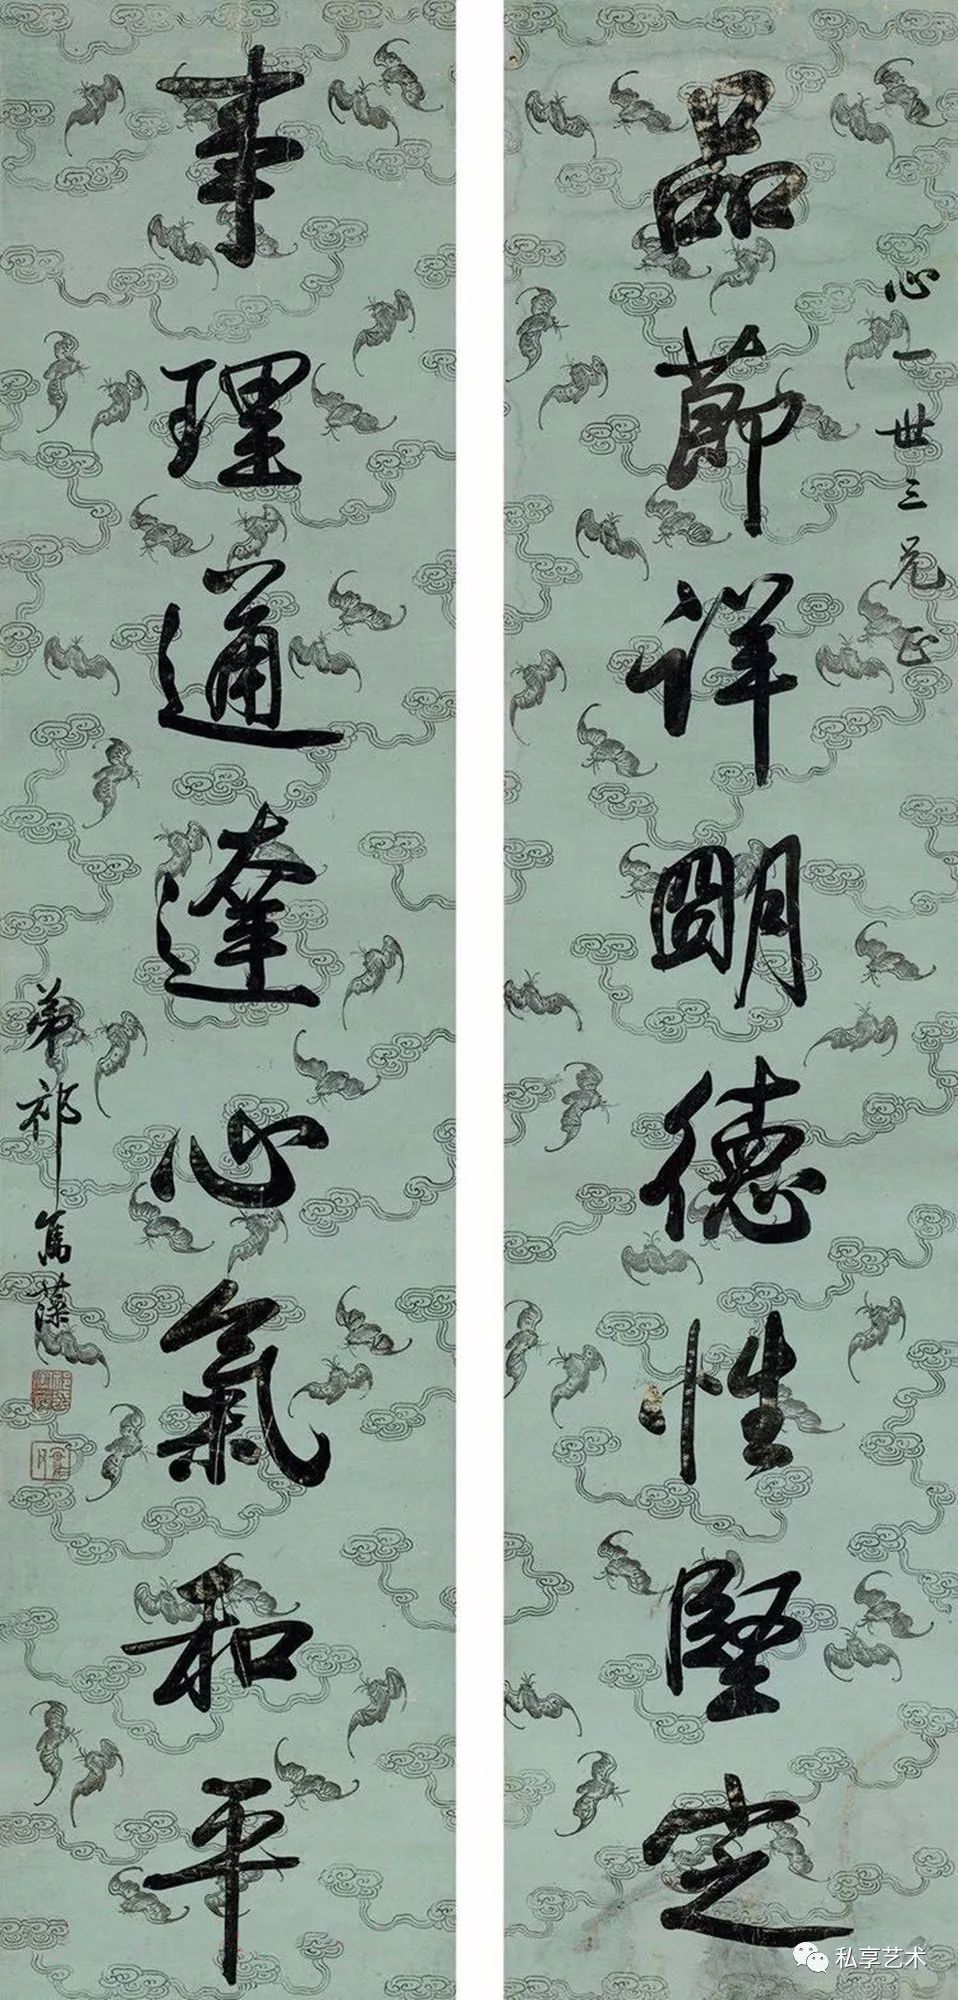 心一世三兄正
品節詳明德性堅定
事理通達心氣和平
弟祁寯藻
私享艺术